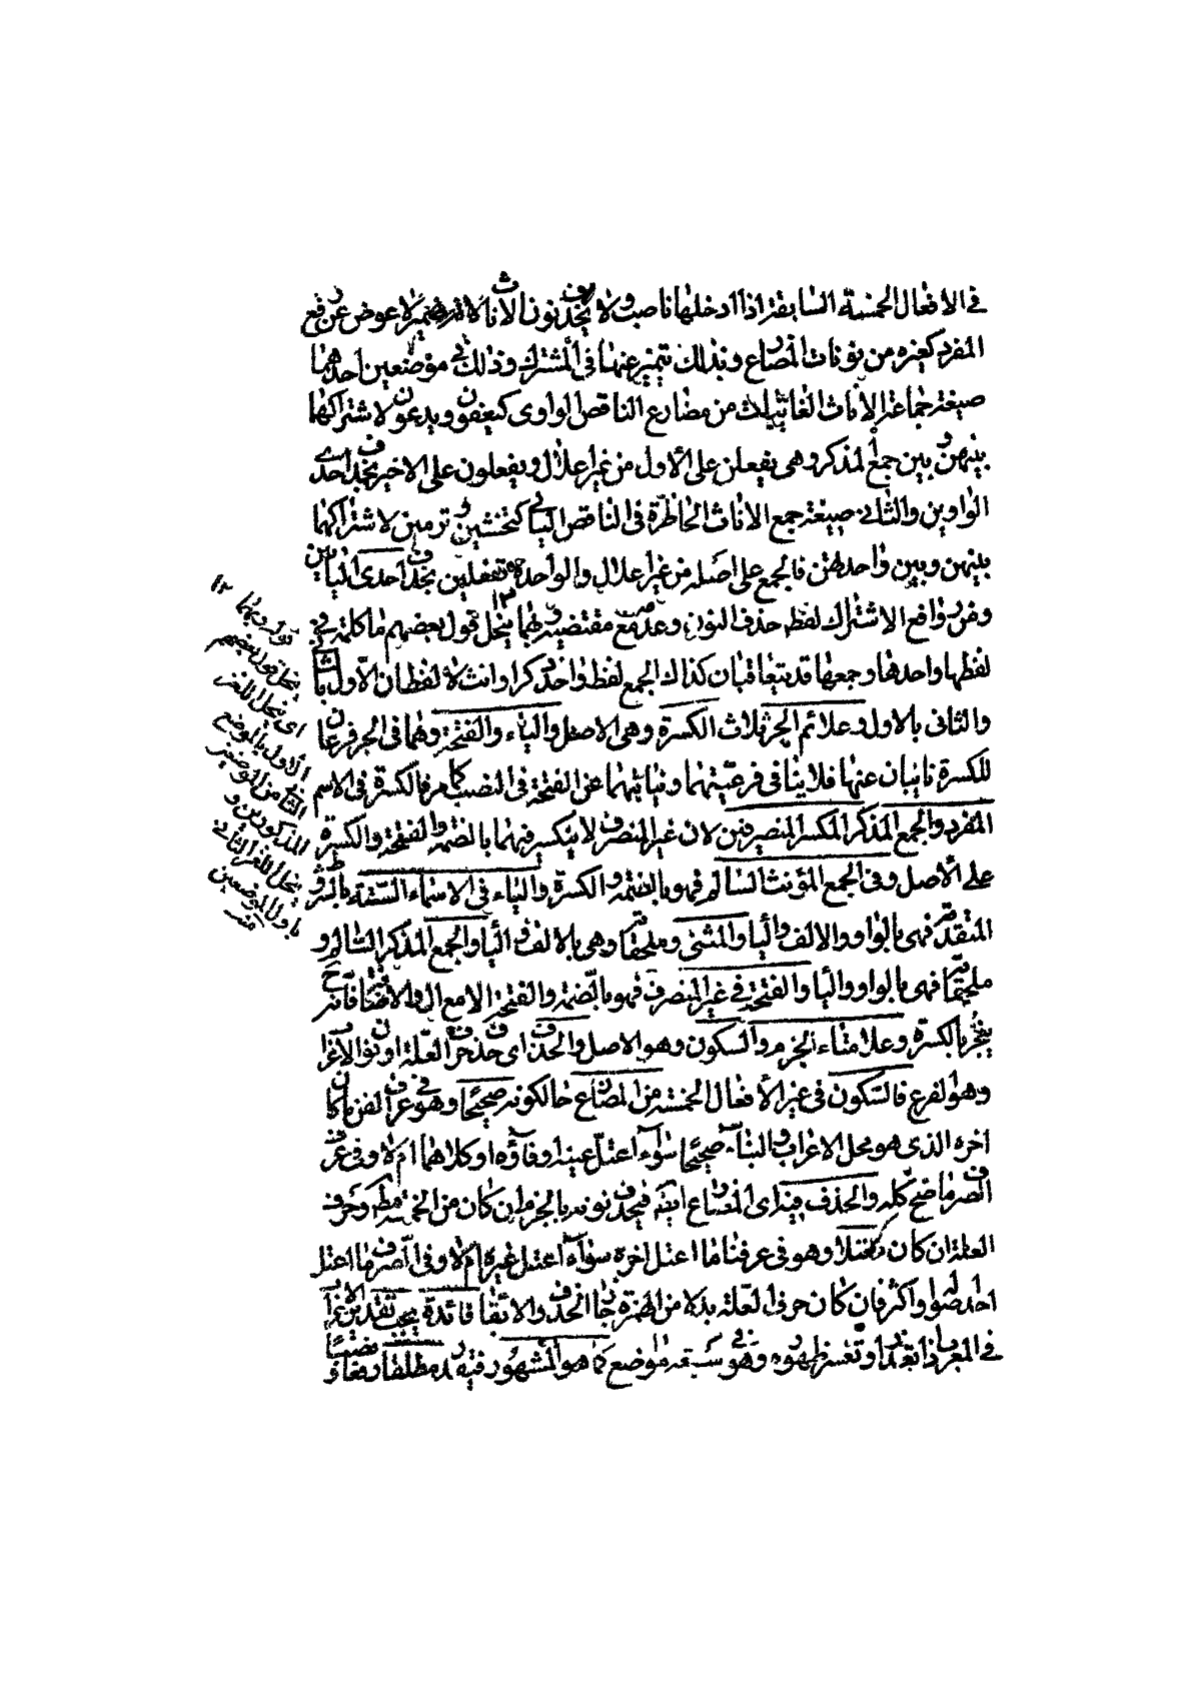 في الافعال الخمسة السابقة اذا دخلها ناصب ولا يحذف نون الاناث لانه ضمير لا عوض عن رفع
المفرد كغيره من نونات المضارع وبذلك تتميز عنها في المشترك وذلك في موضعين احدهما
صيغة جماعة الاناث الغائبات من مضارع الناقص الواوى كيعفون ويدعون لاشتراكها
بينهن وبين جمع المذكر وهى يفعلن على الاول من غير اعلال ويفعلون على الاخير بحذف احدى
الواوين والثانى صيغة جمع الاناث الحاضرة في الناقص اليائى كتخشين وترمين لاشتراكها
بينهن وبين واحدتهن فالجمع على اصله من غير اعلال والواحدة تفعلين بحذف احدى اليائين
ومن مواقع الاشتراك لفظ حذف النون وعدمه مع مقتضيه وبهما ينحل قول بعضهم ما كلمة في
لفظها واحدها وجمعها قد يتعاقبان كذاك الجمع لفظ واحد ذكرا وانث لا لفظان الاول بالثانى
والثانى بالاول وعلائم الجر ثلاث الكسرة وهى الاصل والياء والفتحة وهما في الجر فرعان
للكسرة نايبان عنها فلا ينافى فرعيتهما ونيابتهما عن الفتحة في النصب كما مر فالكسرة في الاسم
المفرد والجمع المذكر المكسر المنصرفين لان غير المنصرف لا ينكسر فهما بالضمة والفتحة والكسرة
على الاصل وفى الجمع المؤنث السالم فهو بالضمة والكسرة والياء في الاسماء الستة بالشروط
المتقدمة فهى بالواو والالف والياء والمثنى وملحقاته وهى بالالف والياء والجمع المذكر السالم و
ملحقاته فهى بالواو والياء والفتحة في غير المنصرف فهو بالضمة والفتحة الا مع ال والاضافة فانه ح
ينجر بالكسرة وعلامتا الجزم السكون وهو الاصل والحذف اى حذف حرف العلة او نون الاعراب
وهو الفرع فالسكون في غير الافعال الخمسة من المضارع حالكونه صحيحا وهو في عرف الفن ما كان
اخره الذى هو محل الاعراب والبناء صحيحا سواء اعتل عينه او فاؤه او كلاهما ام لا وفى عرف
الصرف ما صح كله والحذف فيه اى المضارع ايضا فيحذف نونه بالجزم ان كان من الخمسة وحرف
العلة ان كان معتلا وهو في عرفنا ما اعتل اخره سواء اعتل غيره ام لا وفى الصرف ما اعتل
احد اصوله او اكثر فان كان حرف العلة بدلا من الهمزة جاز الحذف والابقاء فائدة يجب تقدير الاعراب
في المعرب اذا تعذر او تعسر ظهوره وهو في سبعة مواضع كما هو المشهور فيقدر مطلقا رفعا ونصبا
قوله وبهما ١٢
ينحل قول بعضهم
اى ينحل اللغز
الاول بالموضع
الثانى من الموضعين
المذكورين و
ينحل اللغز الثانى
باول الموضعين
منه